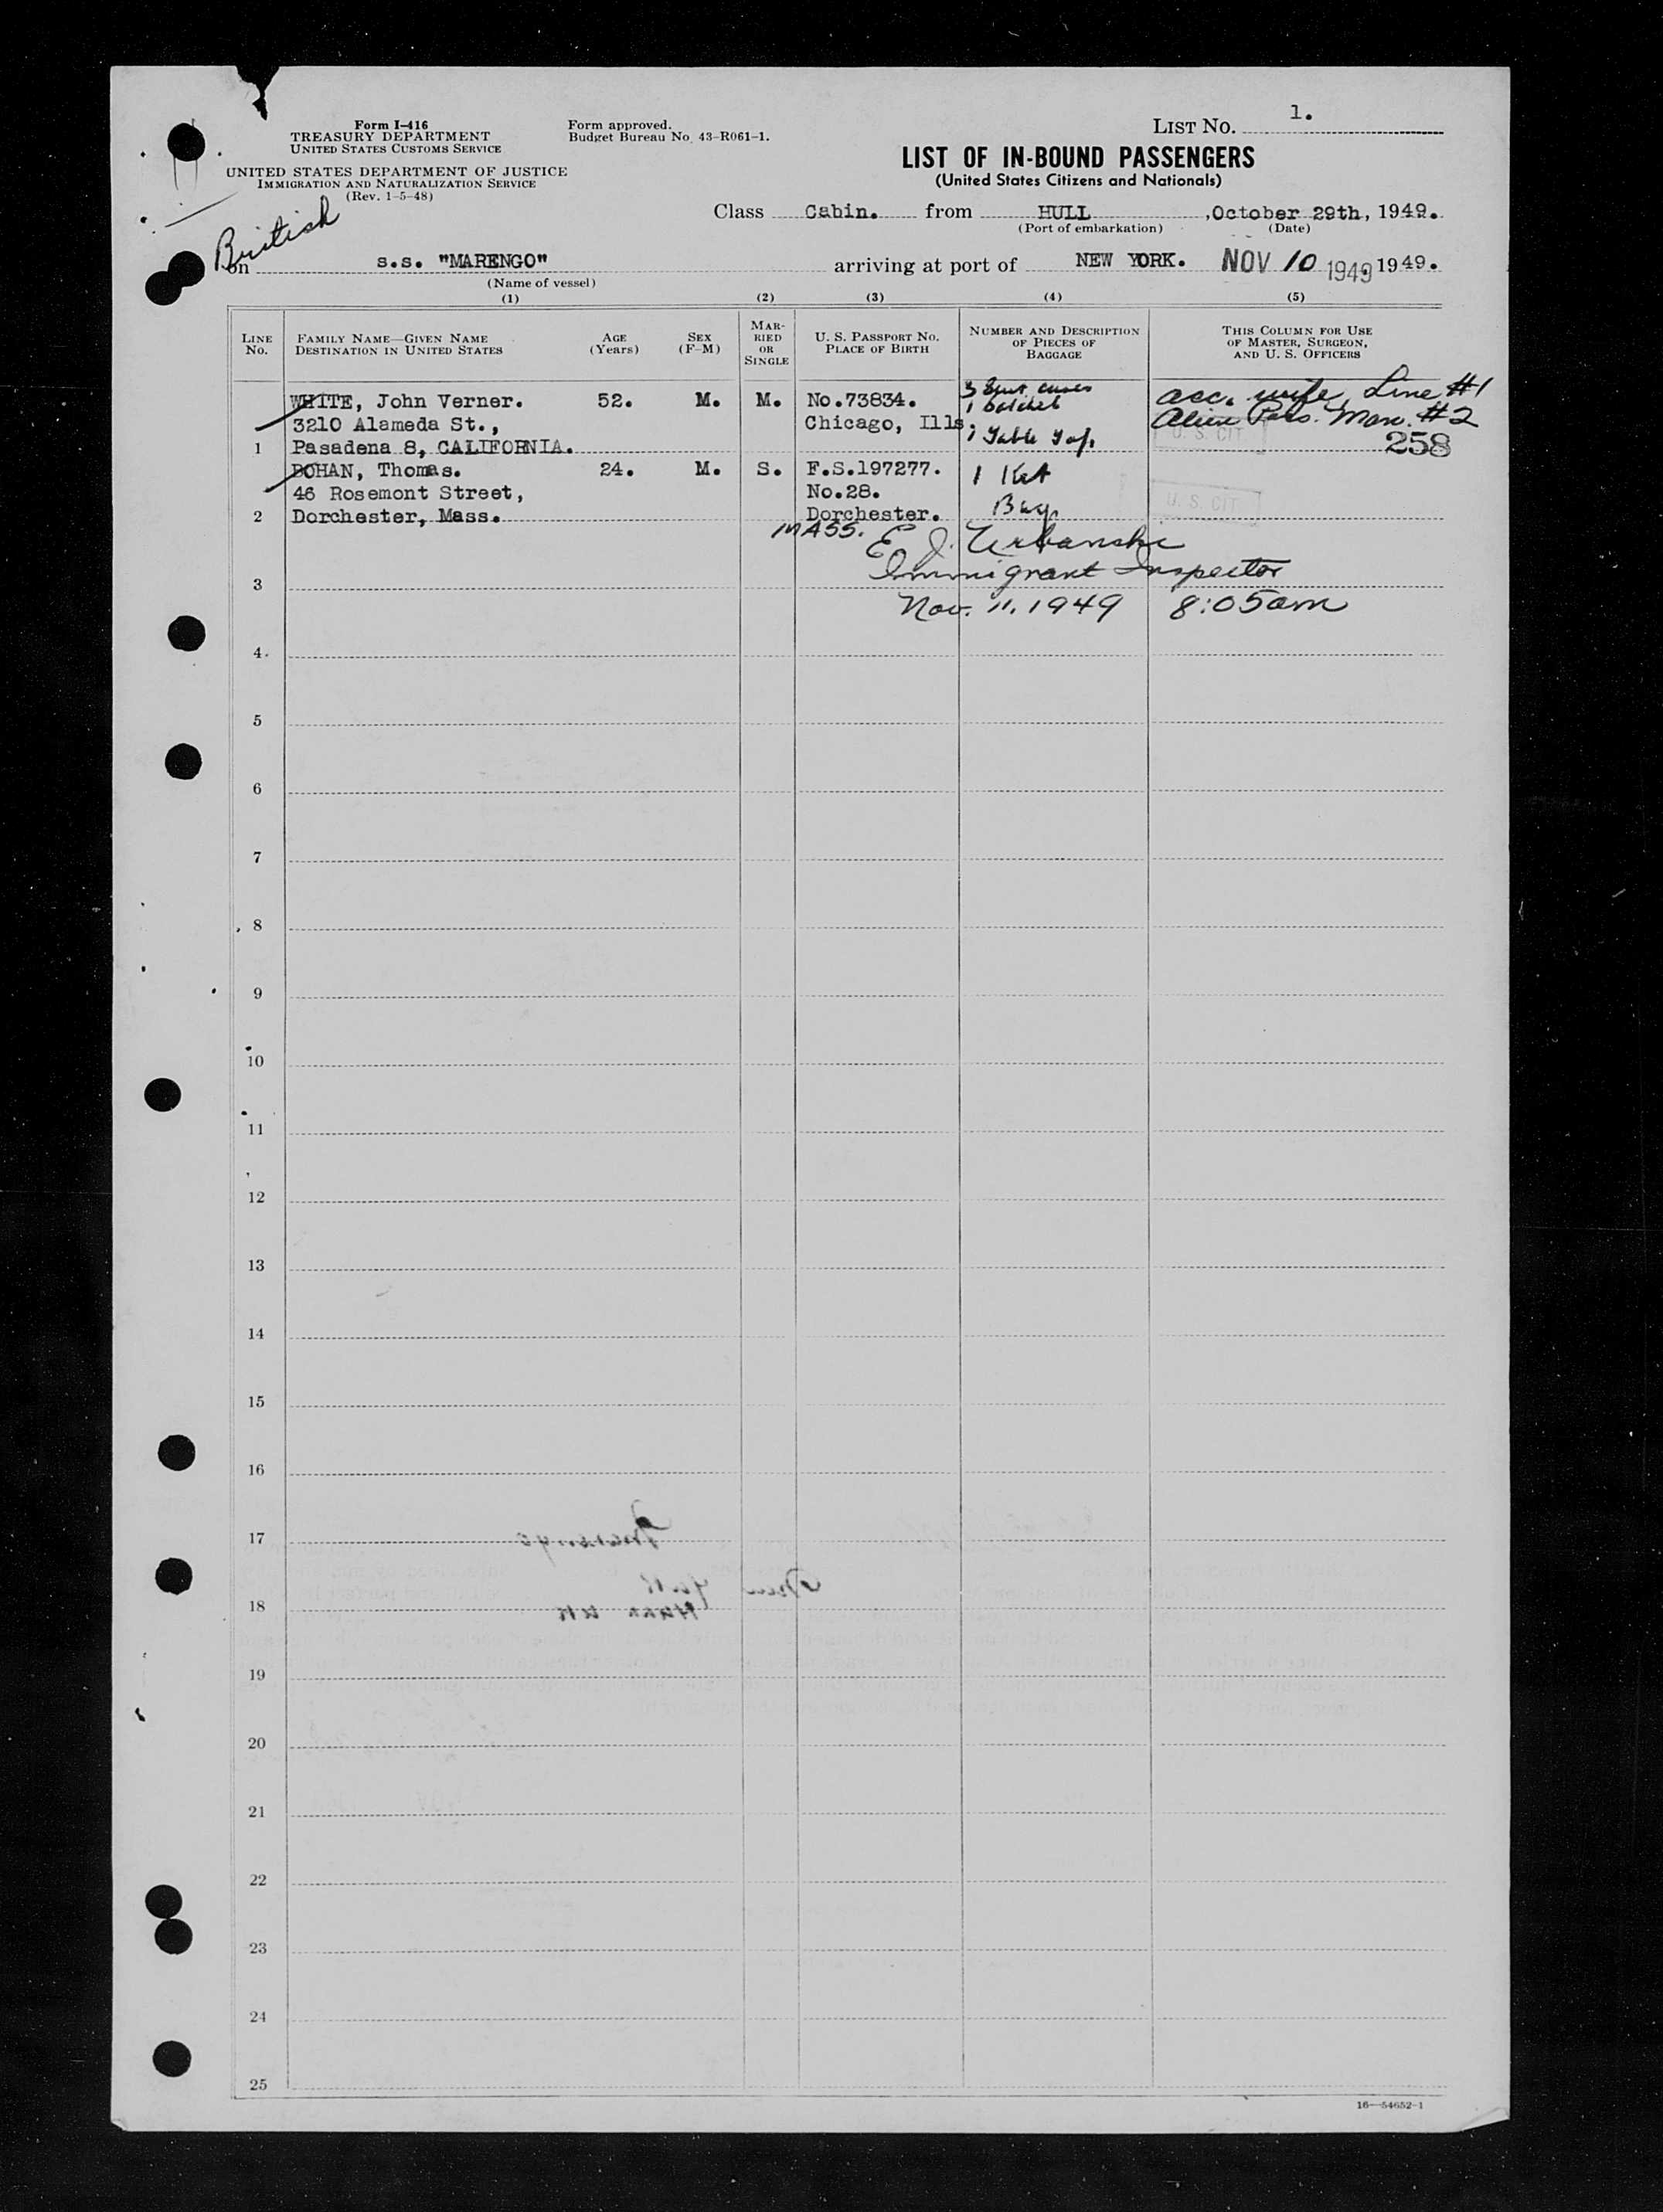 List No. 1.
Form I-416
TREASURY DEPARTMENT
United States Customs Service
Form approved.
Budget Bureau No. 43-R061-1.
UNITED STATES DEPARTMENT OF JUSTICE
Immigration and Naturalization Service
(Rev. 1-5-48)
LIST OF IN-BOUND PASSENGERS
(United States Citizens and Nationals)
Class Cabin. from HULL, October 29th, 1949.
(Port of embarkation) (Date)
British
on s.s. "MARENGO" arriving at port of NEW YORK. NOV 10 1949 1949.
(Name of vessel)
(1) (2) (3) (4) (5)
Line No.
Family Name—Given Name
Destination in United States
Age (Years)
Sex (F-M)
Married or Single
U. S. Passport No.
Place of Birth
Number and Description of Pieces of Baggage
This Column for Use of Master, Surgeon, and U. S. Officers
WHITE, John Verner. 52. M. M. No.73834. 3 Suit cases acc. wife, Line #1
3210 Alameda St., Chicago, Ills. 1 Satchel Alien Pass. Man. #2
U. S. CIT
1 Pasadena 8, CALIFORNIA. 1 Table Top. 258
DOHAN, Thomas. 24. M. S. F.S.197277. 1 Kit
46 Rosemont Street, No.28. U. S. CIT
2 Dorchester, Mass. Dorchester. Bag.
MASS.
E. J. Urbanski
Immigrant Inspector
3
Nov. 11, 1949 8:05am
4
5
6
7
8
9
10
11
12
13
14
15
16
17
18
19
20
21
22
23
24
25
16—54652-1